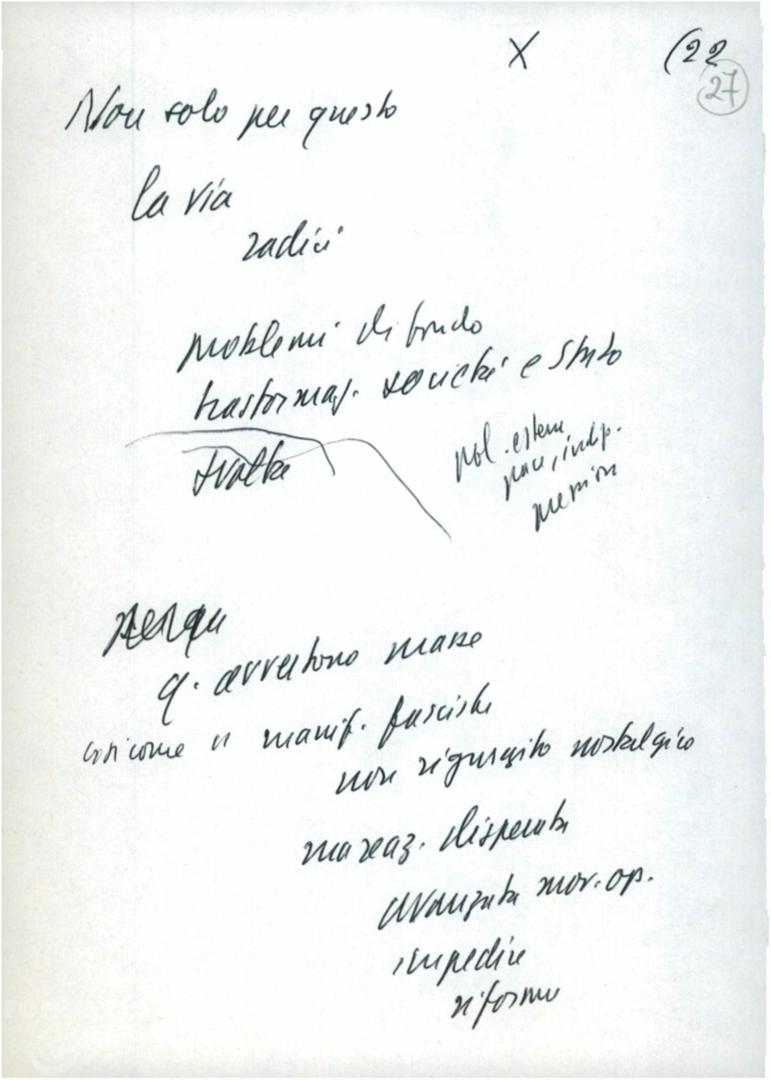 X (22
27
Non solo per questo
la via
radici
problemi di fondo
trasformaz. società e Stato
svolta
pol. estera
pace, indip.
q. avvertono masse
così come si manif. fasciste
non rigurgito nostalgico
ma reaz. disperata
avanzata mov. op.
impedire
riforme